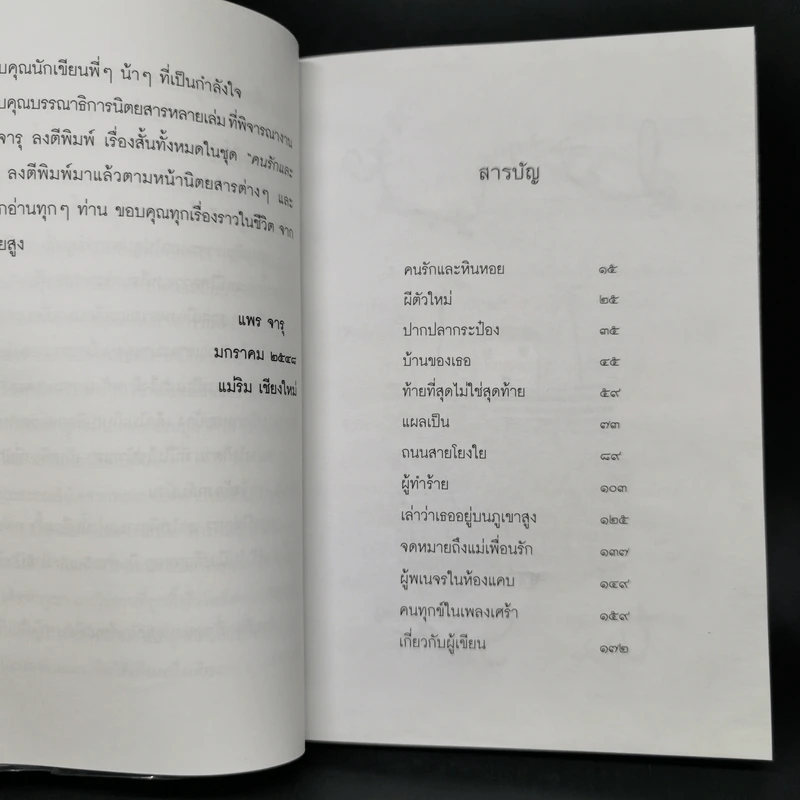 บคุณนักเขียนพี่ๆ น้าๆ ที่เป็นกำลังใจ
บคุณบรรณาธิการนิตยสารหลายเล่ม ที่พิจารณางาน
จารุ ลงตีพิมพ์ เรื่องสั้นทั้งหมดในชุด "คนรักและ
ลงตีพิมพ์มาแล้วตามหน้านิตยสารต่างๆ และ
กอ่านทุกๆ ท่าน ขอบคุณทุกเรื่องราวในชีวิต จาก
ยสูง
แพร จารุ
มกราคม ๒๕๔๘
แม่ริม เชียงใหม่
สารบัญ
คนรักและหินหอย ๑๕
ผีตัวใหม่ ๒๕
ปากปลากระป๋อง ๓๕
บ้านของเธอ ๔๕
ท้ายที่สุดไม่ใช่สุดท้าย ๕๙
แผลเป็น ๗๓
ถนนสายโยงใย ๘๙
ผู้ทำร้าย ๑๐๓
เล่าว่าเธออยู่บนภูเขาสูง ๑๒๕
จดหมายถึงแม่เพื่อนรัก ๑๓๗
ผู้พเนจรในห้องแคบ ๑๔๙
คนทุกข์ในเพลงเศร้า ๑๕๙
เกี่ยวกับผู้เขียน ๑๗๒